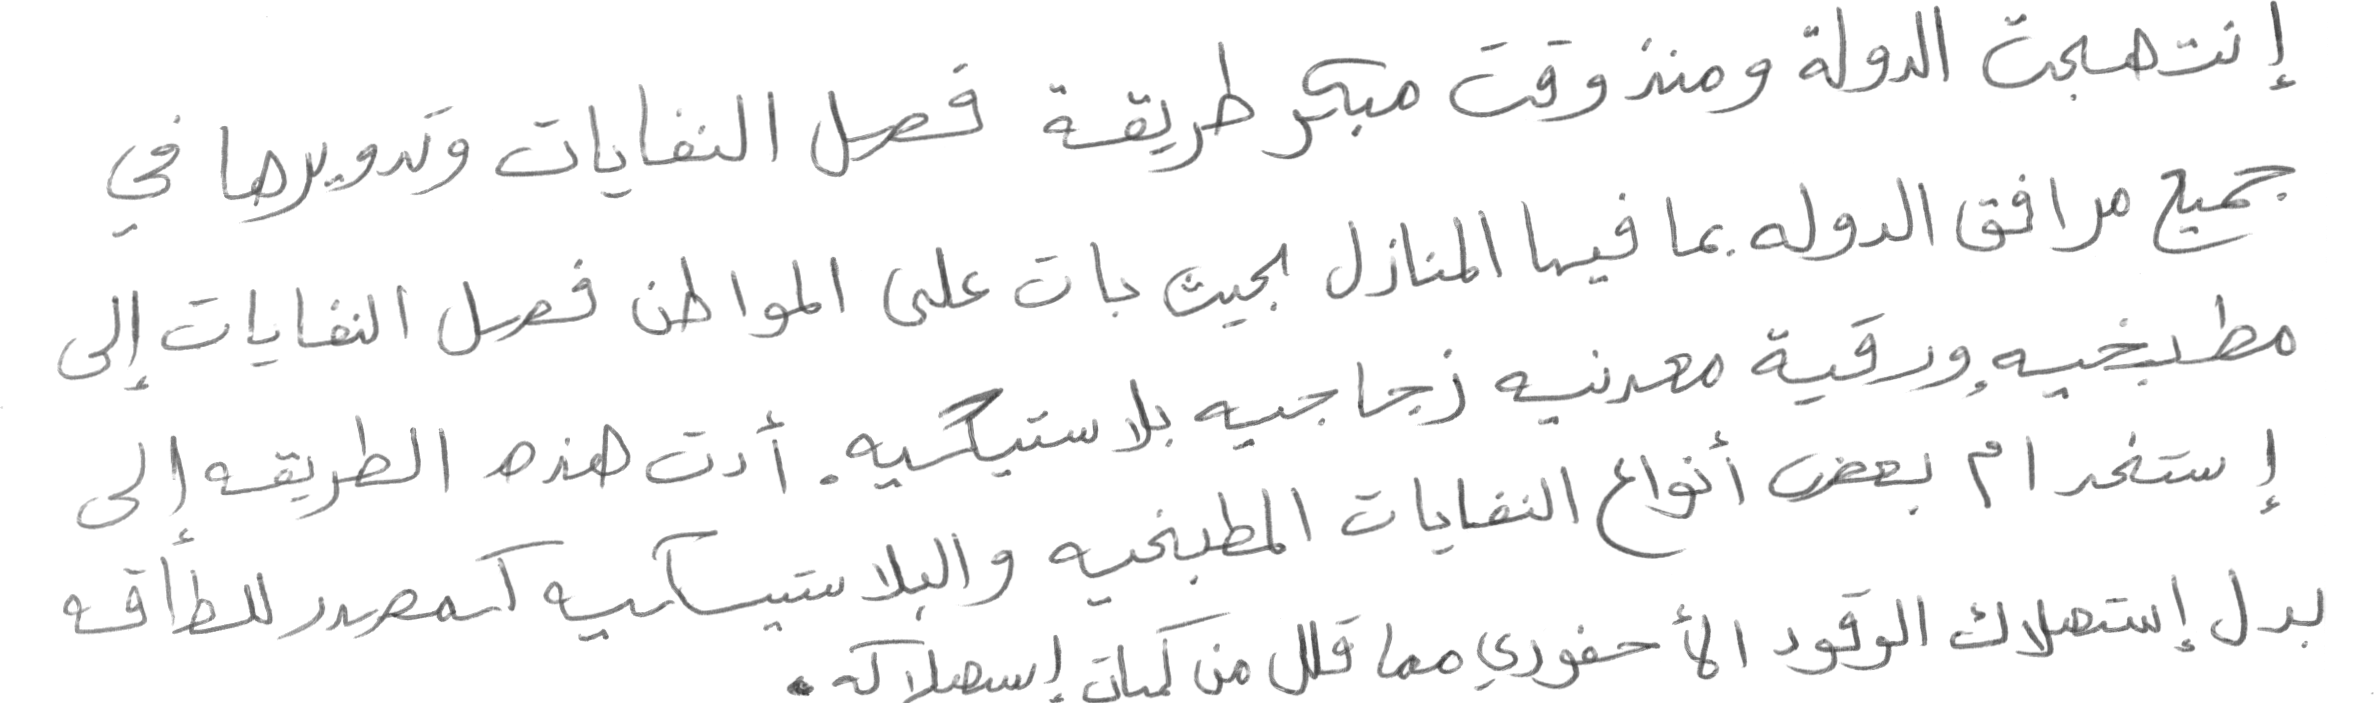 إنتهجت الدولة ومنذ وقت مبكر طريقة فصل النفايات وتدويرها في
جميع مرافق الدوله بما فيها المنازل بحيث بات على المواطن فصل النفايات إلى
مطبخيه ورقية معدنيه زجاجيه بلاستيكيه. أدت هذه الطريقه إلى
إستخدام بعض أنواع النفايات المطبخيه والبلاستيكيه كمصدر للطأقه
بدل إستهلاك الوقود الأحفوري مما قلل من كميات إستهلاكه.